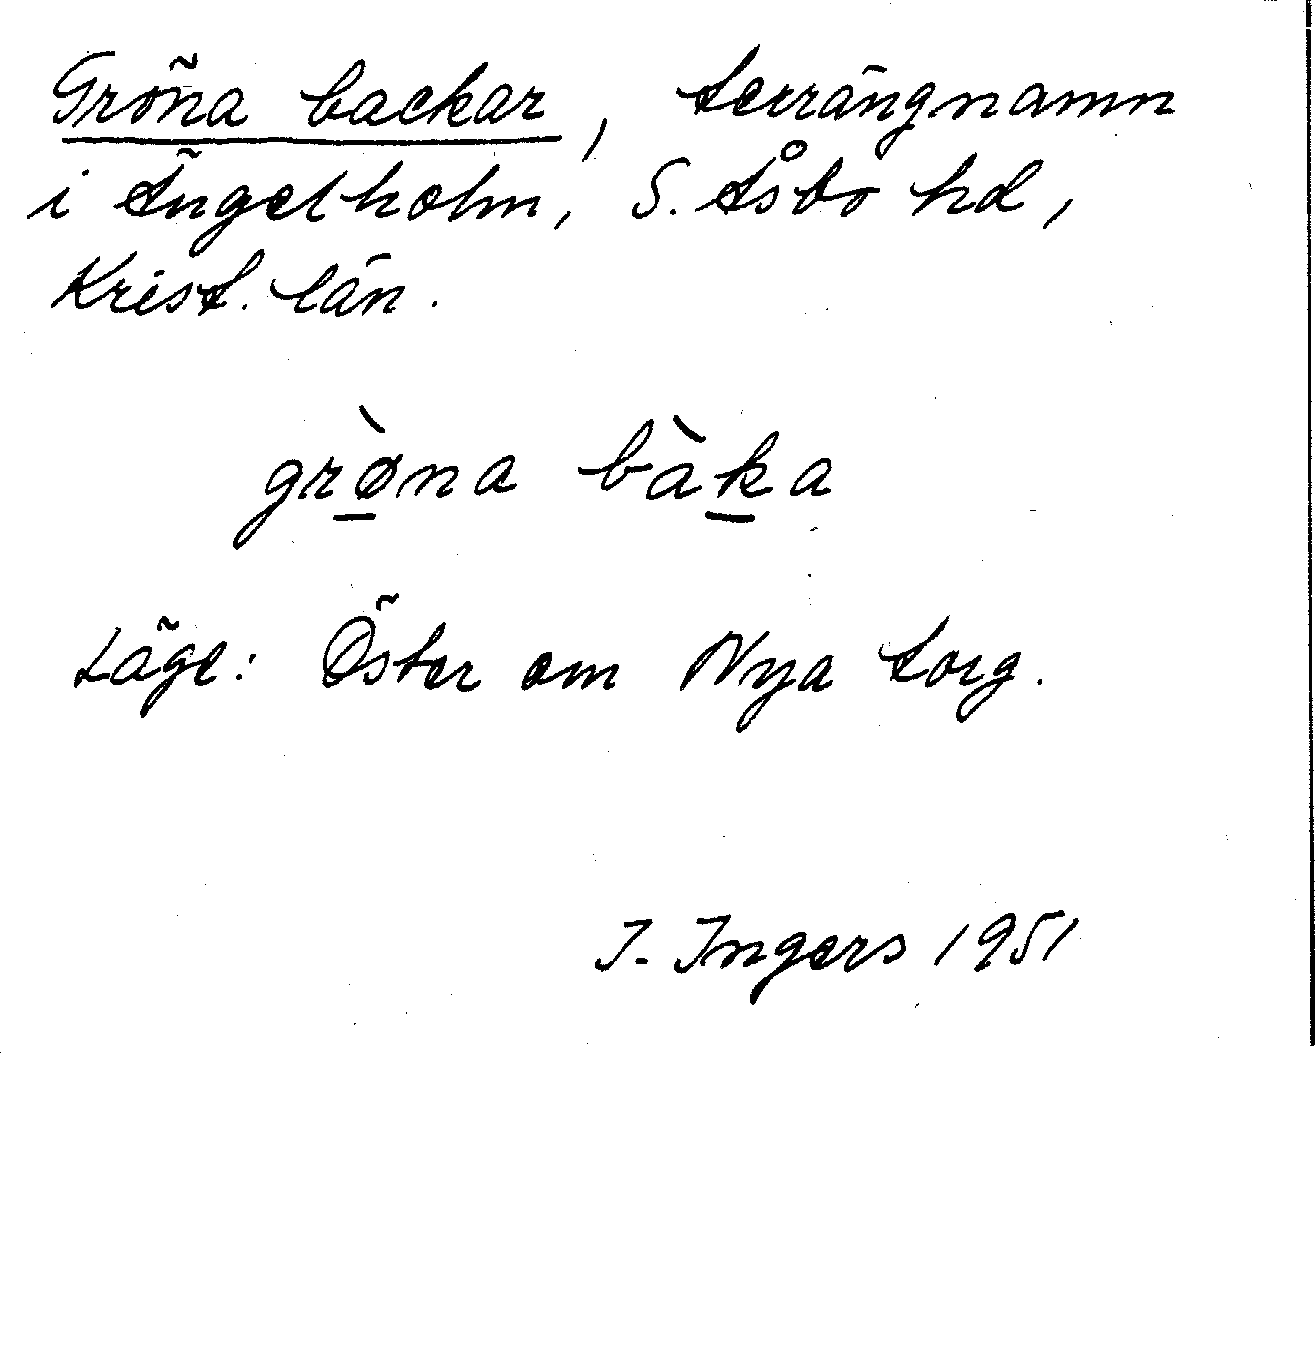 Gröna backar, terrängnamn
i Ängelholm, S. Åsbo hd,
Krist. län.
grø̀na bàka
Läge: Öster om Nya torg.
I. Ingers 1951